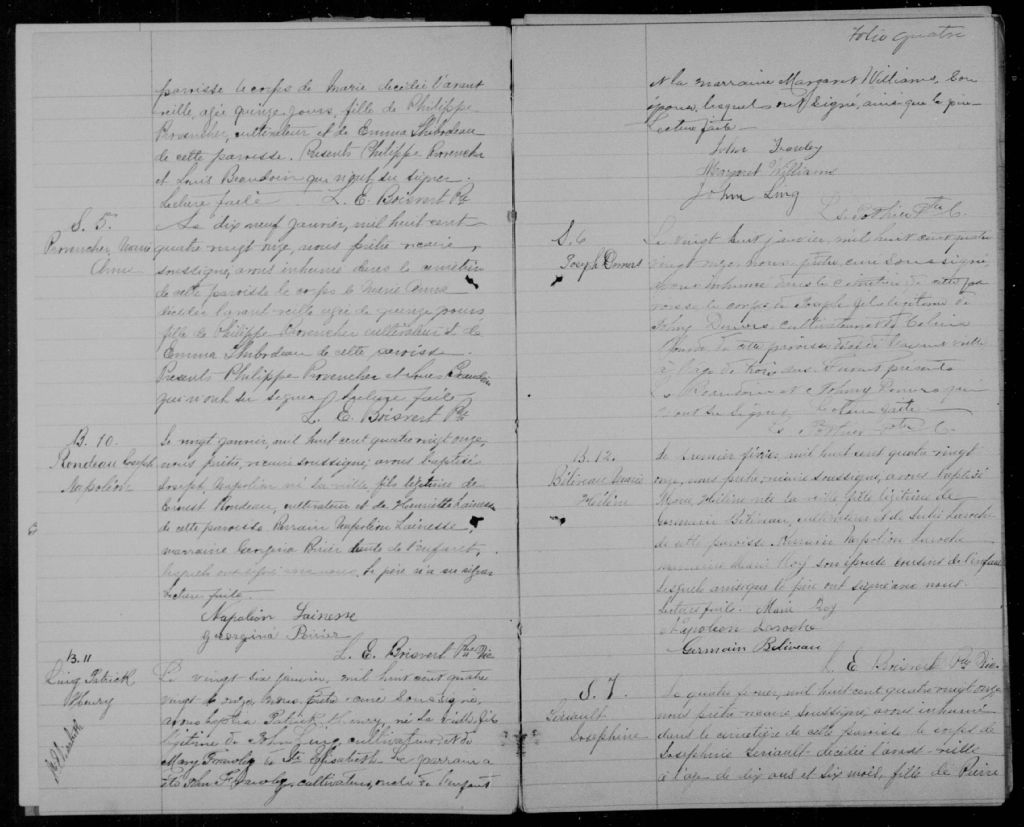 paroisse le corps de Marie décédée l'avant
veille, agée quinze jours, fille de Philippe
Provencher, cultivateur et de Emma Thibodeau
de cette paroisse. Présents Philippe Provencher
et Louis Beaudoin qui n'ont su signer.
Lecture faite. L. E. Boisvert Ptr
S. 5.
Provencher, Marie
Anna
Le dix neuf janvier, mil huit cent
quatre vingt onze, nous prêtre vicaire
soussigné, avons inhumé dans le cimetière
de cette paroisse le corps de Marie Anna
décédée l'avant-veille agée de quinze jours
fille de Philippe Provencher cultivateur et de
Emma Thibodeau de cette paroisse.
Présents Philippe Provencher et Louis Beaudoin
qui n'ont su signer Lecture faite
L. E. Boisvert Ptr
B. 10.
Rondeau Joseph
Napoléon
Le vingt janvier, mil huit cent quatre vingt onze,
nous prêtre, vicaire soussigné, avons baptisé
Joseph Napoléon né la veille fils légitime de
Ernest Rondeau, cultivateur et de Henriette Lainesse
de cette paroisse Parrain Napoléon Lainesse,
marraine Georgina Poirier tante de l'enfant,
lesquels ont signé avec nous. Le père n'a su signer
Lecture faite.
Napoléon Lainesse
Georgina Poirier
L. E. Boisvert Ptre Vic
B. 11
Ling Patrick
Henry
Le vingt six janvier, mil huit cent quatre
vingt onze, nous prêtre curé soussigné,
avons baptisé Patrick Henry, né la veille, fils
légitime de John Ling, cultivateur, & de
Mary Frawley de Ste Elisabeth. Le parrain a
été John Frawley, cultivateur, oncle de l'enfant
Folio quatre
& la marraine Margaret Williams, son
épouse, lesquels ont signé, ainsi que le père
Lecture faite
John Frawley
Margaret Williams
John Ling
Ls. Pothier Ptre C.
S. 6
Joseph Demers
Le vingt huit janvier, mil huit cent quatre
vingt onze, nous prêtre, curé soussigné,
avons inhumé dans le cimetière de cette pa-
roisse le corps de Joseph fils légitime de
Johny Demers cultivateur & de
de cette paroisse décédé l'avant veille
à l'âge de trois ans. Furent présents
Beaudoin et Johny Demers qui
n'ont su signer Lecture faite
Ls Pothier Ptre C.
B. 12.
Béliveau Marie
Hélène
Le premier février mil huit cent quatre vingt
onze, nous prêtre, vicaire soussigné, avons baptisé
Marie Hélène née la veille fille légitime de
Germain Béliveau, cultivateur et de Laroche
de cette paroisse Parrain Napoléon Laroche
marraine Marie Roy son épouse cousins de l'enfant
lesquels ainsi que le père ont signé avec nous.
Lecture faite. Marie Roy
Napoléon Laroche
Germain Béliveau
L. E. Boisvert Ptre Vic.
S. 7.
Leriault
Josephine
Le quatre février, mil huit cent quatre vingt onze
nous prêtre vicaire soussigné, avons inhumé
dans le cimetière de cette paroisse le corps de
Josephine Leriault décédée l'avant-veille
à l'age de dix ans et six mois, fille de Pierre